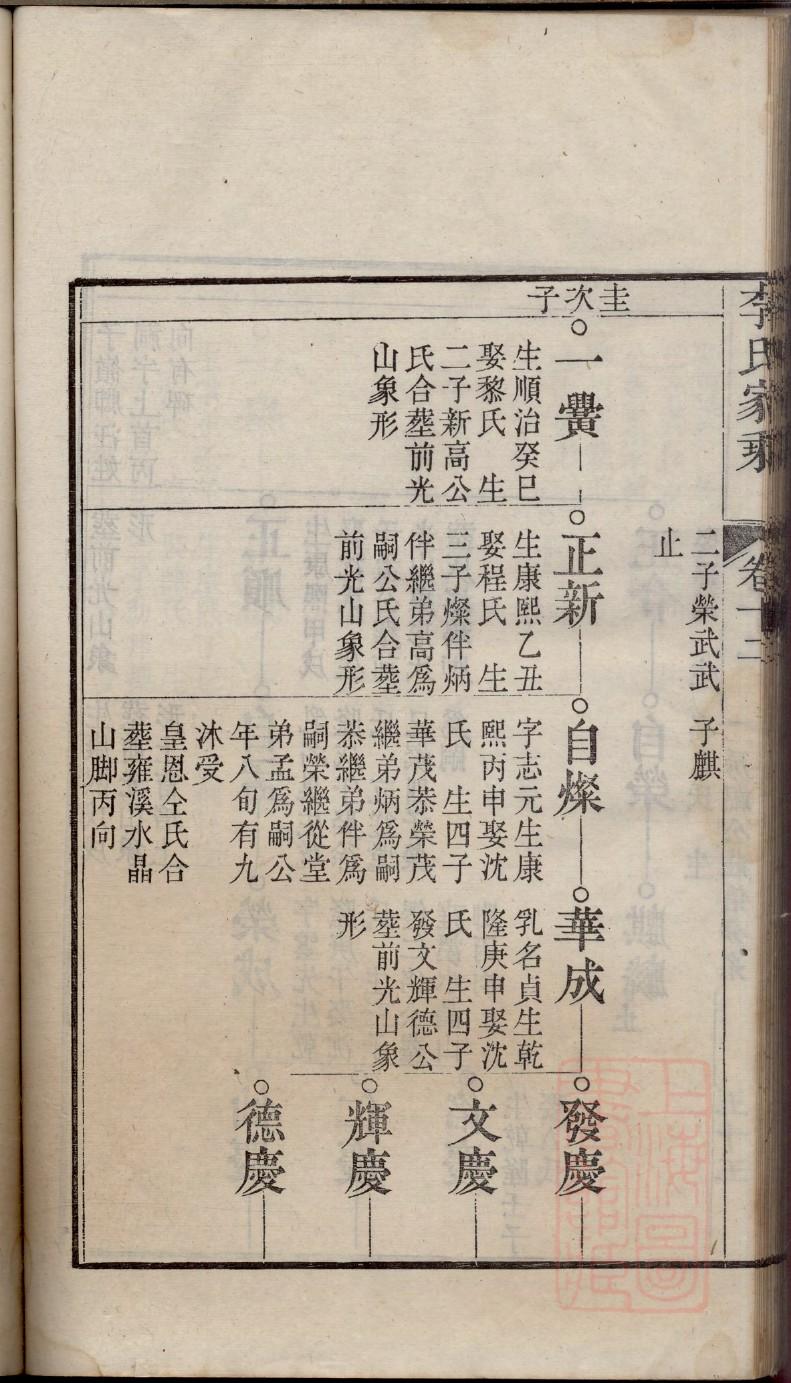 李氏家乘
卷十二
二子榮武武
止
子麒
圭次子
一黌
生順治癸巳
娶黎氏 生
二子新高公
氏合塟前光
山象形
正新
生康熙乙丑
娶程氏 生
三子燦伴炳
伴繼弟高爲
嗣公氏合塟
前光山象形
自燦
字志元生康
熙丙申娶沈
氏 生四子
華茂恭榮茂
繼弟炳爲嗣
恭繼弟伴爲
嗣榮繼從堂
弟孟爲嗣公
年八旬有九
沐受
皇恩仝氏合
塟雍溪水晶
山脚丙向
華成
乳名貞生乾
隆庚申娶沈
氏 生四子
發文輝德公
塟前光山象
形
發慶
文慶
輝慶
德慶